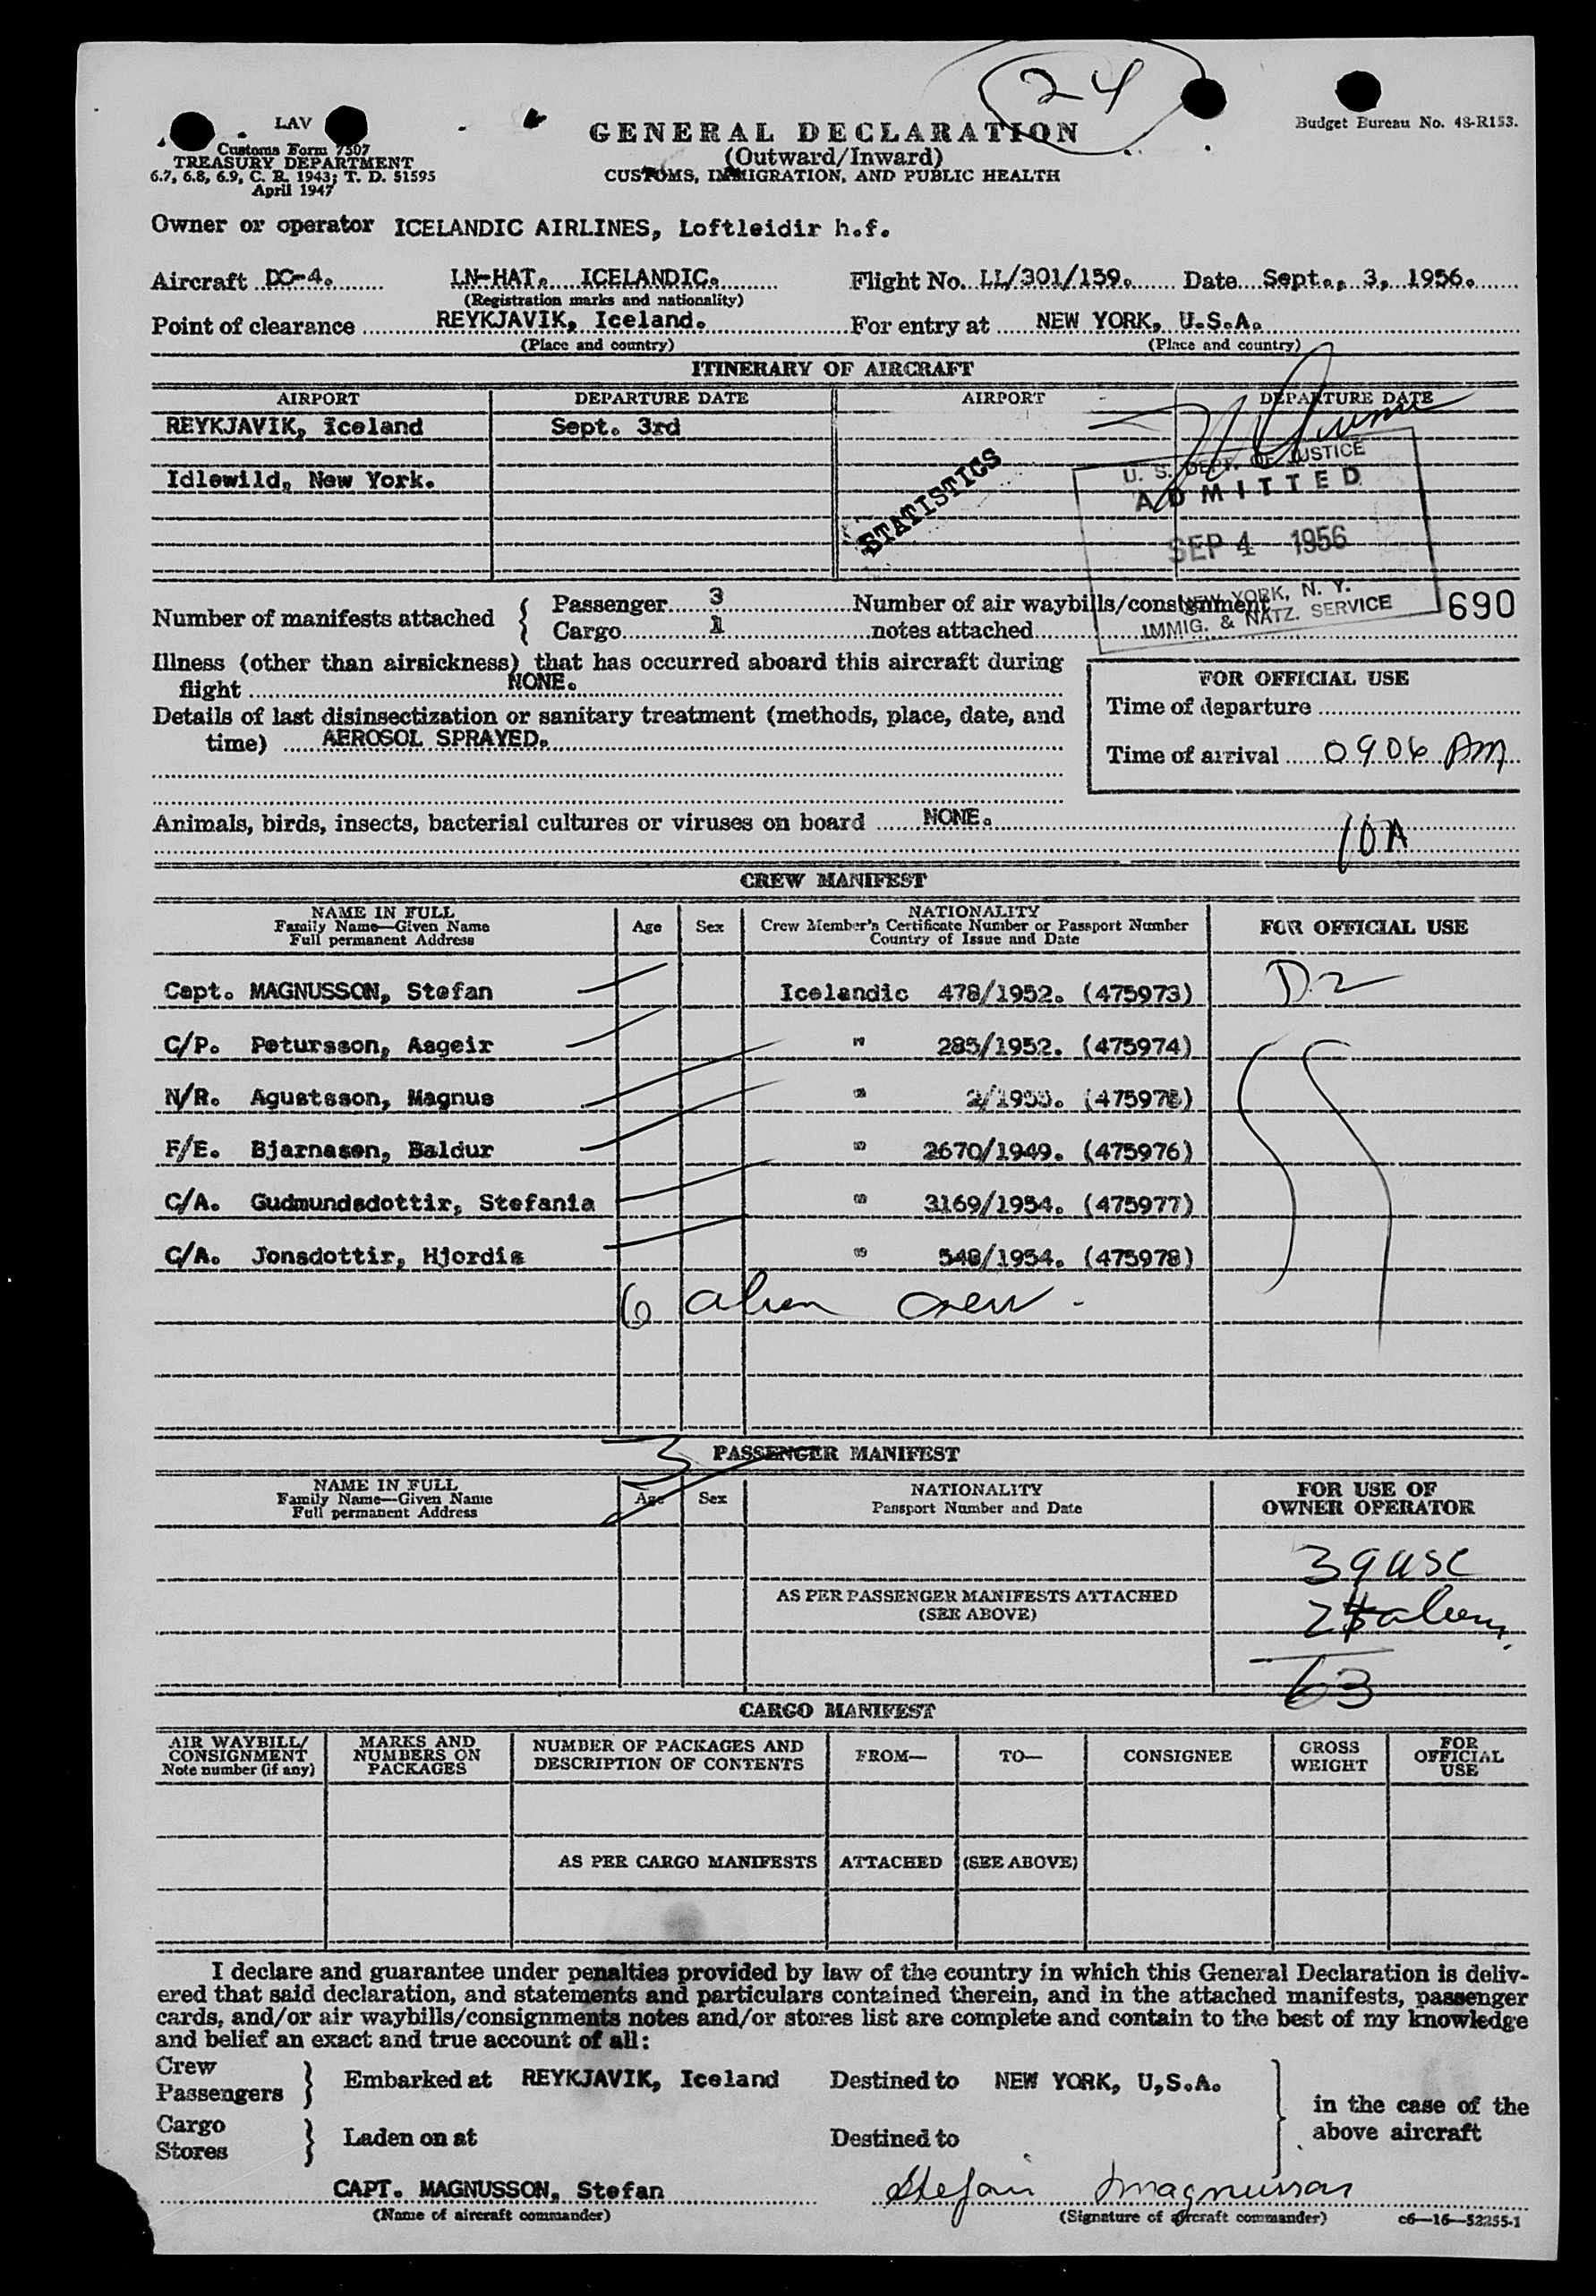 24
LAV
Customs Form 7507
TREASURY DEPARTMENT
6.7, 6.8, 6.9, C. R. 1943; T. D. 51595
April 1947
GENERAL DECLARATION
(Outward/Inward)
CUSTOMS, IMMIGRATION, AND PUBLIC HEALTH
Budget Bureau No. 48-R153.
Owner or operator ICELANDIC AIRLINES, Loftleidir h.f.
Aircraft DC-4. LN-HAT. ICELANDIC. Flight No. LL/301/159. Date Sept., 3, 1956.
(Registration marks and nationality)
Point of clearance REYKJAVIK, Iceland. For entry at NEW YORK, U.S.A.
(Place and country) (Place and country)
ITINERARY OF AIRCRAFT
AIRPORT DEPARTURE DATE AIRPORT DEPARTURE DATE
REYKJAVIK, Iceland Sept. 3rd
Idlewild, New York.
STATISTICS
U. S. DEPT. OF JUSTICE
ADMITTED
SEP 4 1956
NEW YORK, N. Y.
IMMIG. & NATZ. SERVICE
690
Number of manifests attached { Passenger 3 Number of air waybills/consignment
Cargo 1 notes attached
Illness (other than airsickness) that has occurred aboard this aircraft during
flight NONE.
Details of last disinsectization or sanitary treatment (methods, place, date, and
time) AEROSOL SPRAYED.
FOR OFFICIAL USE
Time of departure
Time of arrival 0906 AM
Animals, birds, insects, bacterial cultures or viruses on board NONE.
10A
CREW MANIFEST
NAME IN FULL
Family Name—Given Name
Full permanent Address
Age Sex
NATIONALITY
Crew Member's Certificate Number or Passport Number
Country of Issue and Date
FOR OFFICIAL USE
Capt. MAGNUSSON, Stefan Icelandic 478/1952. (475973) D2
C/P. Petursson, Asgeir " 285/1952. (475974)
N/R. Agustsson, Magnus "
F/E. Bjarnason, Baldur " 2670/1949. (475976)
C/A. Gudmundsdottir, Stefania " 3169/1954. (475977)
C/A. Jonsdottir, Hjordis " 548/1954. (475978)
6 alien crew -
3
PASSENGER MANIFEST
NAME IN FULL
Family Name—Given Name
Full permanent Address
Age Sex
NATIONALITY
Passport Number and Date
FOR USE OF
OWNER OPERATOR
39 USC
AS PER PASSENGER MANIFESTS ATTACHED
(SEE ABOVE)
aliens
63
CARGO MANIFEST
AIR WAYBILL/
CONSIGNMENT
Note number (if any)
MARKS AND
NUMBERS ON
PACKAGES
NUMBER OF PACKAGES AND
DESCRIPTION OF CONTENTS
FROM— TO— CONSIGNEE
GROSS
WEIGHT
FOR
OFFICIAL
USE
AS PER CARGO MANIFESTS ATTACHED (SEE ABOVE)
I declare and guarantee under penalties provided by law of the country in which this General Declaration is deliv-
ered that said declaration, and statements and particulars contained therein, and in the attached manifests, passenger
cards, and/or air waybills/consignments notes and/or stores list are complete and contain to the best of my knowledge
and belief an exact and true account of all:
Crew
Passengers } Embarked at REYKJAVIK, Iceland Destined to NEW YORK, U,S.A.
in the case of the
above aircraft
Cargo
Stores } Laden on at Destined to
CAPT. MAGNUSSON, Stefan Stefan Magnusson
(Name of aircraft commander) (Signature of aircraft commander) c6—16—52255-1